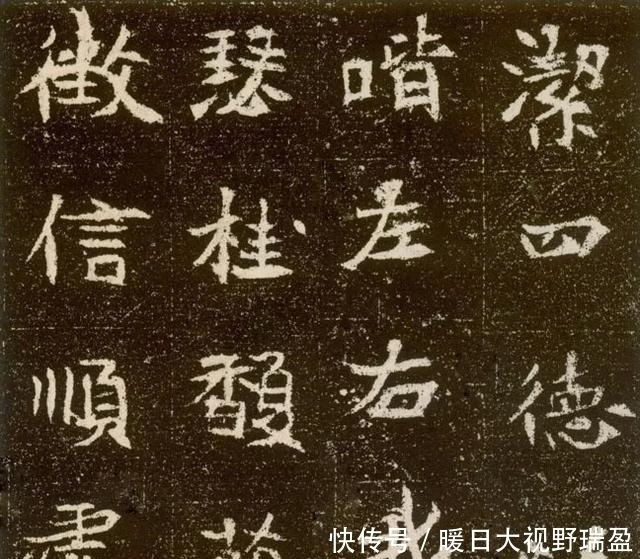 潔四德
喈左右
瑟桂馥
信順
快传号/暖日大视野瑞盈